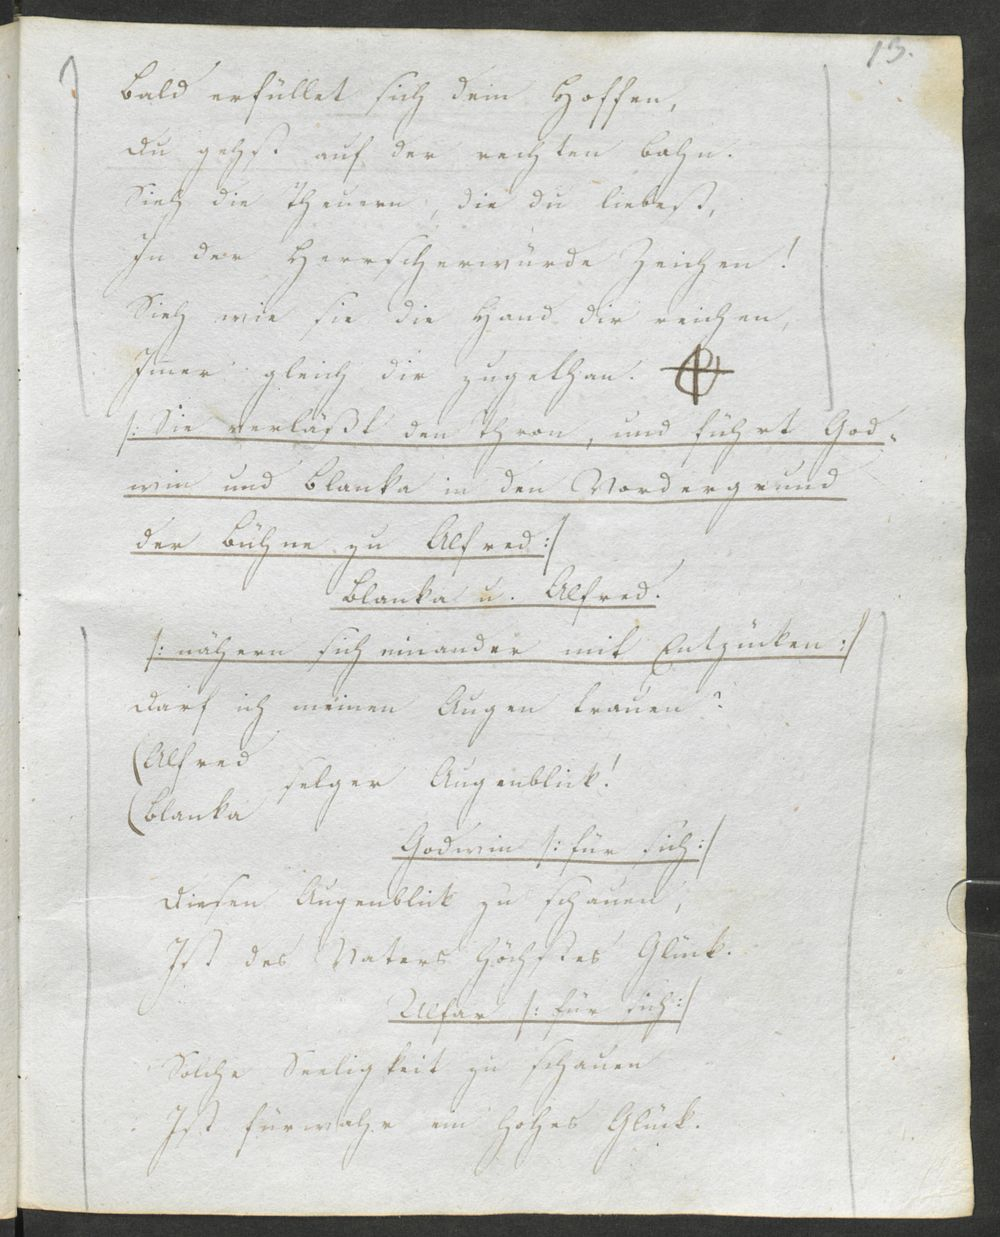 13.
Bald erfüllet sich dein Hoffen,
Du gehst auf der rechten Bahn.
Sieh die Theuern, die du liebest,
In der Herrscherwürde Zeichen!
Sieh wie sie die Hand dir reichen,
Imer gleich dir zugethan.
/: Sie verläßt den Thron, und führt God-
win und Blanka in den Vordergrund
der Bühne zu Alfred :/
Blanka u. Alfred.
/: nähern sich einander mit Entzücken :/
Darf ich meinen Augen trauen?
(Alfred
selger Augenblick!
(Blanka
Godwin /: für sich :/
Diesen Augenblick zu schauen,
Ist des Vaters höchstes Glück.
Ulfar /: für sich :/
Solche Seeligkeit zu schauen
Ist fürwahr ein hohes Glück.